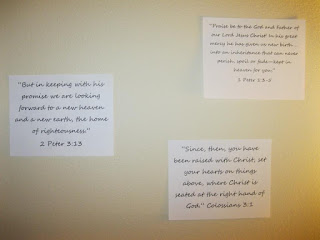 "Praise be to the God and Father of
our Lord Jesus Christ! In his great
mercy he has given us new birth...
into an inheritance that can never
perish, spoil or fade-kept in
heaven for you."
1 Peter 1:3-4
"But in keeping with his
promise we are looking
forward to a new heaven
and a new earth, the home
of righteousness."
2 Peter 3:13
"Since, then, you have
been raised with Christ, set
your hearts on things
above, where Christ is
seated at the right hand of
God." Colossians 3:1